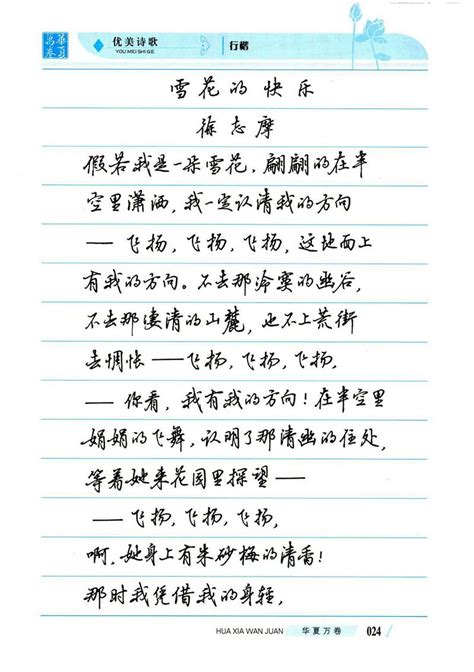 華夏
萬卷
优美诗歌
YOU MEI SHI GE
行楷
雪花的快乐
徐志摩
假若我是一朵雪花，翩翩的在半
空里潇洒，我一定认清我的方向
—— 飞扬，飞扬，飞扬，这地面上
有我的方向。不去那冷寞的幽谷，
不去那凄清的山麓，也不上荒街
去惆怅 ——飞扬，飞扬，飞扬，
—— 你看，我有我的方向！在半空里
娟娟的飞舞，认明了那清幽的住处，
等着她来花园里探望——
—— 飞扬，飞扬，飞扬，
啊，她身上有朱砂梅的清香！
那时我凭借我的身轻，
HUA XIA WAN JUAN
华夏万卷
024